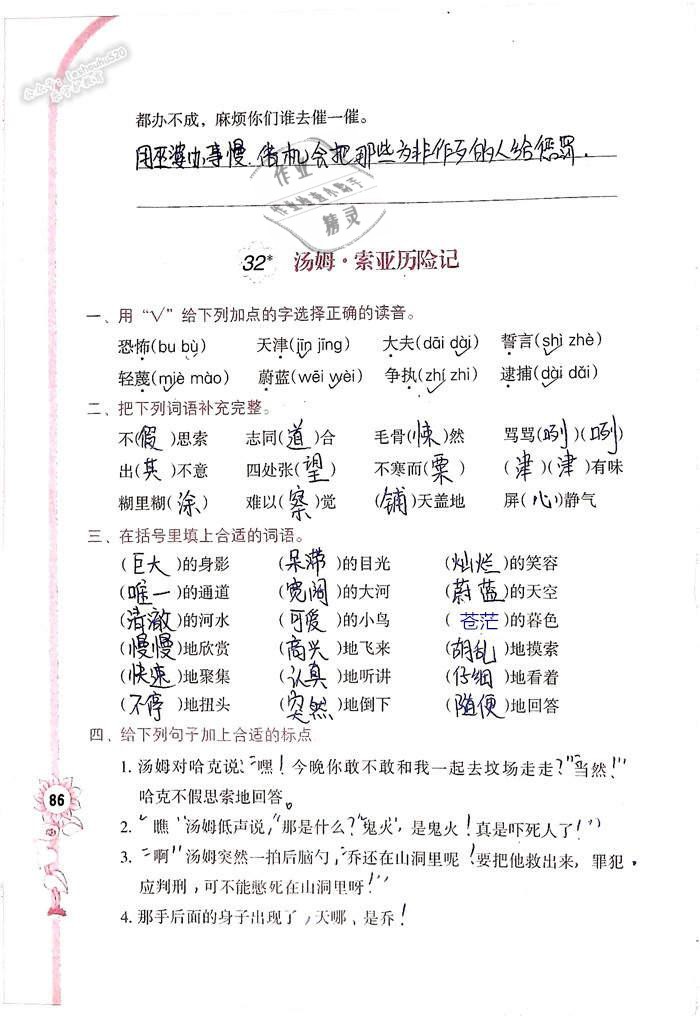 公众号: leshouhu520
都办不成，麻烦你们谁去催一催。
用巫婆办事慢，做机会把那些为非作歹的人给惩罚.
作业
作业检查小助手
精灵
32* 汤姆·索亚历险记
一、用“√”给下列加点的字选择正确的读音。
恐怖(bu bù) 天津(jīn jīng) 大夫(dāi dài) 誓言(shì zhè)
轻蔑(miè mào) 蔚蓝(wēi wèi) 争执(zhí zhi) 逮捕(dài dǎi)
二、把下列词语补充完整。
不(假)思索 志同(道)合 毛骨(悚)然 骂骂(咧)(咧)
出(其)不意 四处张(望) 不寒而(栗) (津)(津)有味
糊里糊(涂) 难以(察)觉 (铺)天盖地 屏(心)静气
三、在括号里填上合适的词语。
(巨大)的身影 (呆滞)的目光 (灿烂)的笑容
(唯一)的通道 (宽阔)的大河 (蔚蓝)的天空
(清澈)的河水 (可爱)的小鸟 (苍茫)的暮色
(慢慢)地欣赏 (高兴)地飞来 (胡乱)地摸索
(快速)地聚集 (认真)地听讲 (仔细)地看着
(不停)地扭头 (突然)地倒下 (随便)地回答
四、给下列句子加上合适的标点
1. 汤姆对哈克说：“嘿！今晚你敢不敢和我一起去坟场走走？”“当然！”
哈克不假思索地回答。
2. “瞧”汤姆低声说，“那是什么？鬼火，是鬼火！真是吓死人了！”
3. “啊”汤姆突然一拍后脑勺，“乔还在山洞里呢！要把他救出来，罪犯
应判刑，可不能憋死在山洞里呀！”
4. 那手后面的身子出现了，天哪，是乔！
86